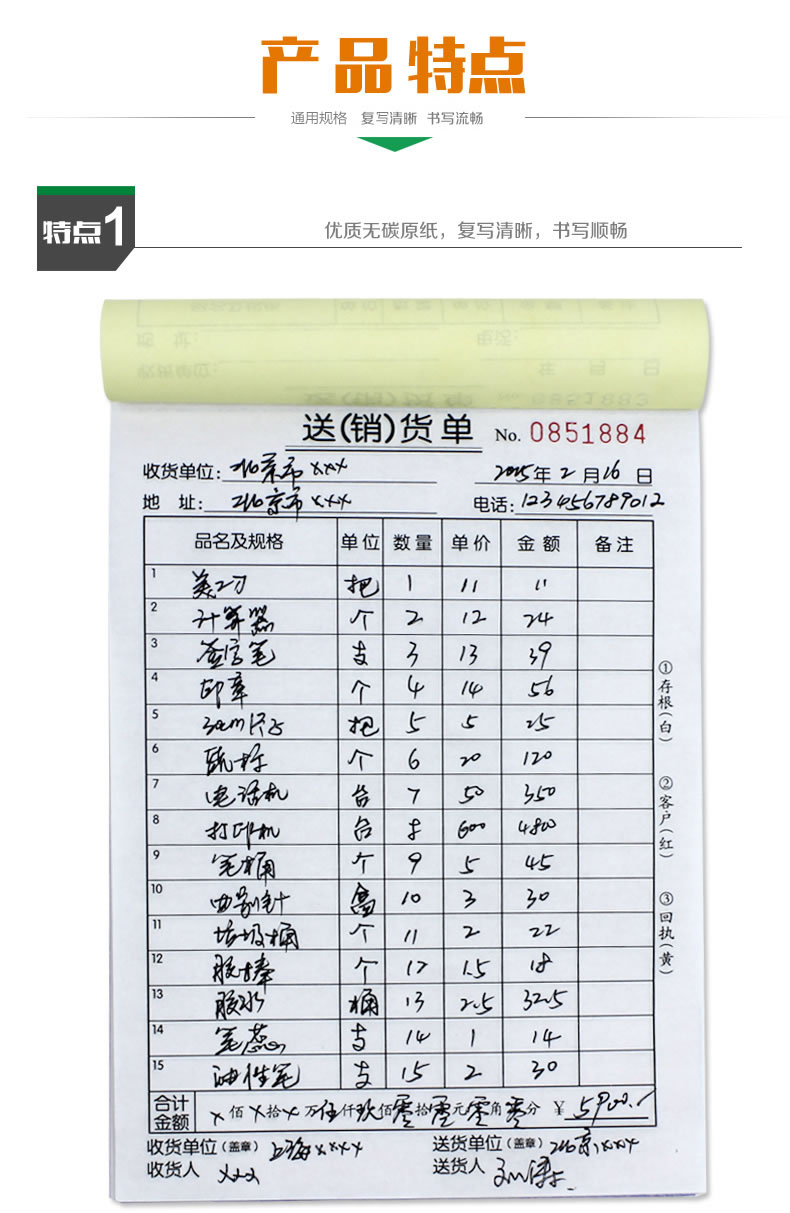 产品特点
通用规格 复写清晰 书写流畅
特点1
优质无碳原纸，复写清晰，书写顺畅
送(销)货单 No. 0851884
收货单位: 北京市xxx 2015年2月16日
地 址: 北京市xxx 电话: 123456789012
品名及规格 单位 数量 单价 金额 备注
1 美工刀 把 1 11 11
2 计算器 个 2 12 24
3 签字笔 支 3 13 39
4 印章 个 4 14 56
5 30cm尺子 把 5 5 25
6 个 6 20 120
7 电话机 台 7 50 350
8 打印机 台 8 600 4800
9 笔桶 个 9 5 45
10 曲别针 盒 10 3 30
11 垃圾桶 个 11 2 22
12 胶棒 个 12 1.5 18
13 胶水 桶 13 2.5 32.5
14 笔蕊 支 14 1 14
15 油性笔 支 15 2 30
合计金额 x佰x拾x万伍仟玖佰零拾零元零角零分 ¥ 5900.
收货单位(盖章) 上海xxxx 送货单位(盖章) 北京xxxx
收货人 xxx 送货人
①存根(白)
②客户(红)
③回执(黄)